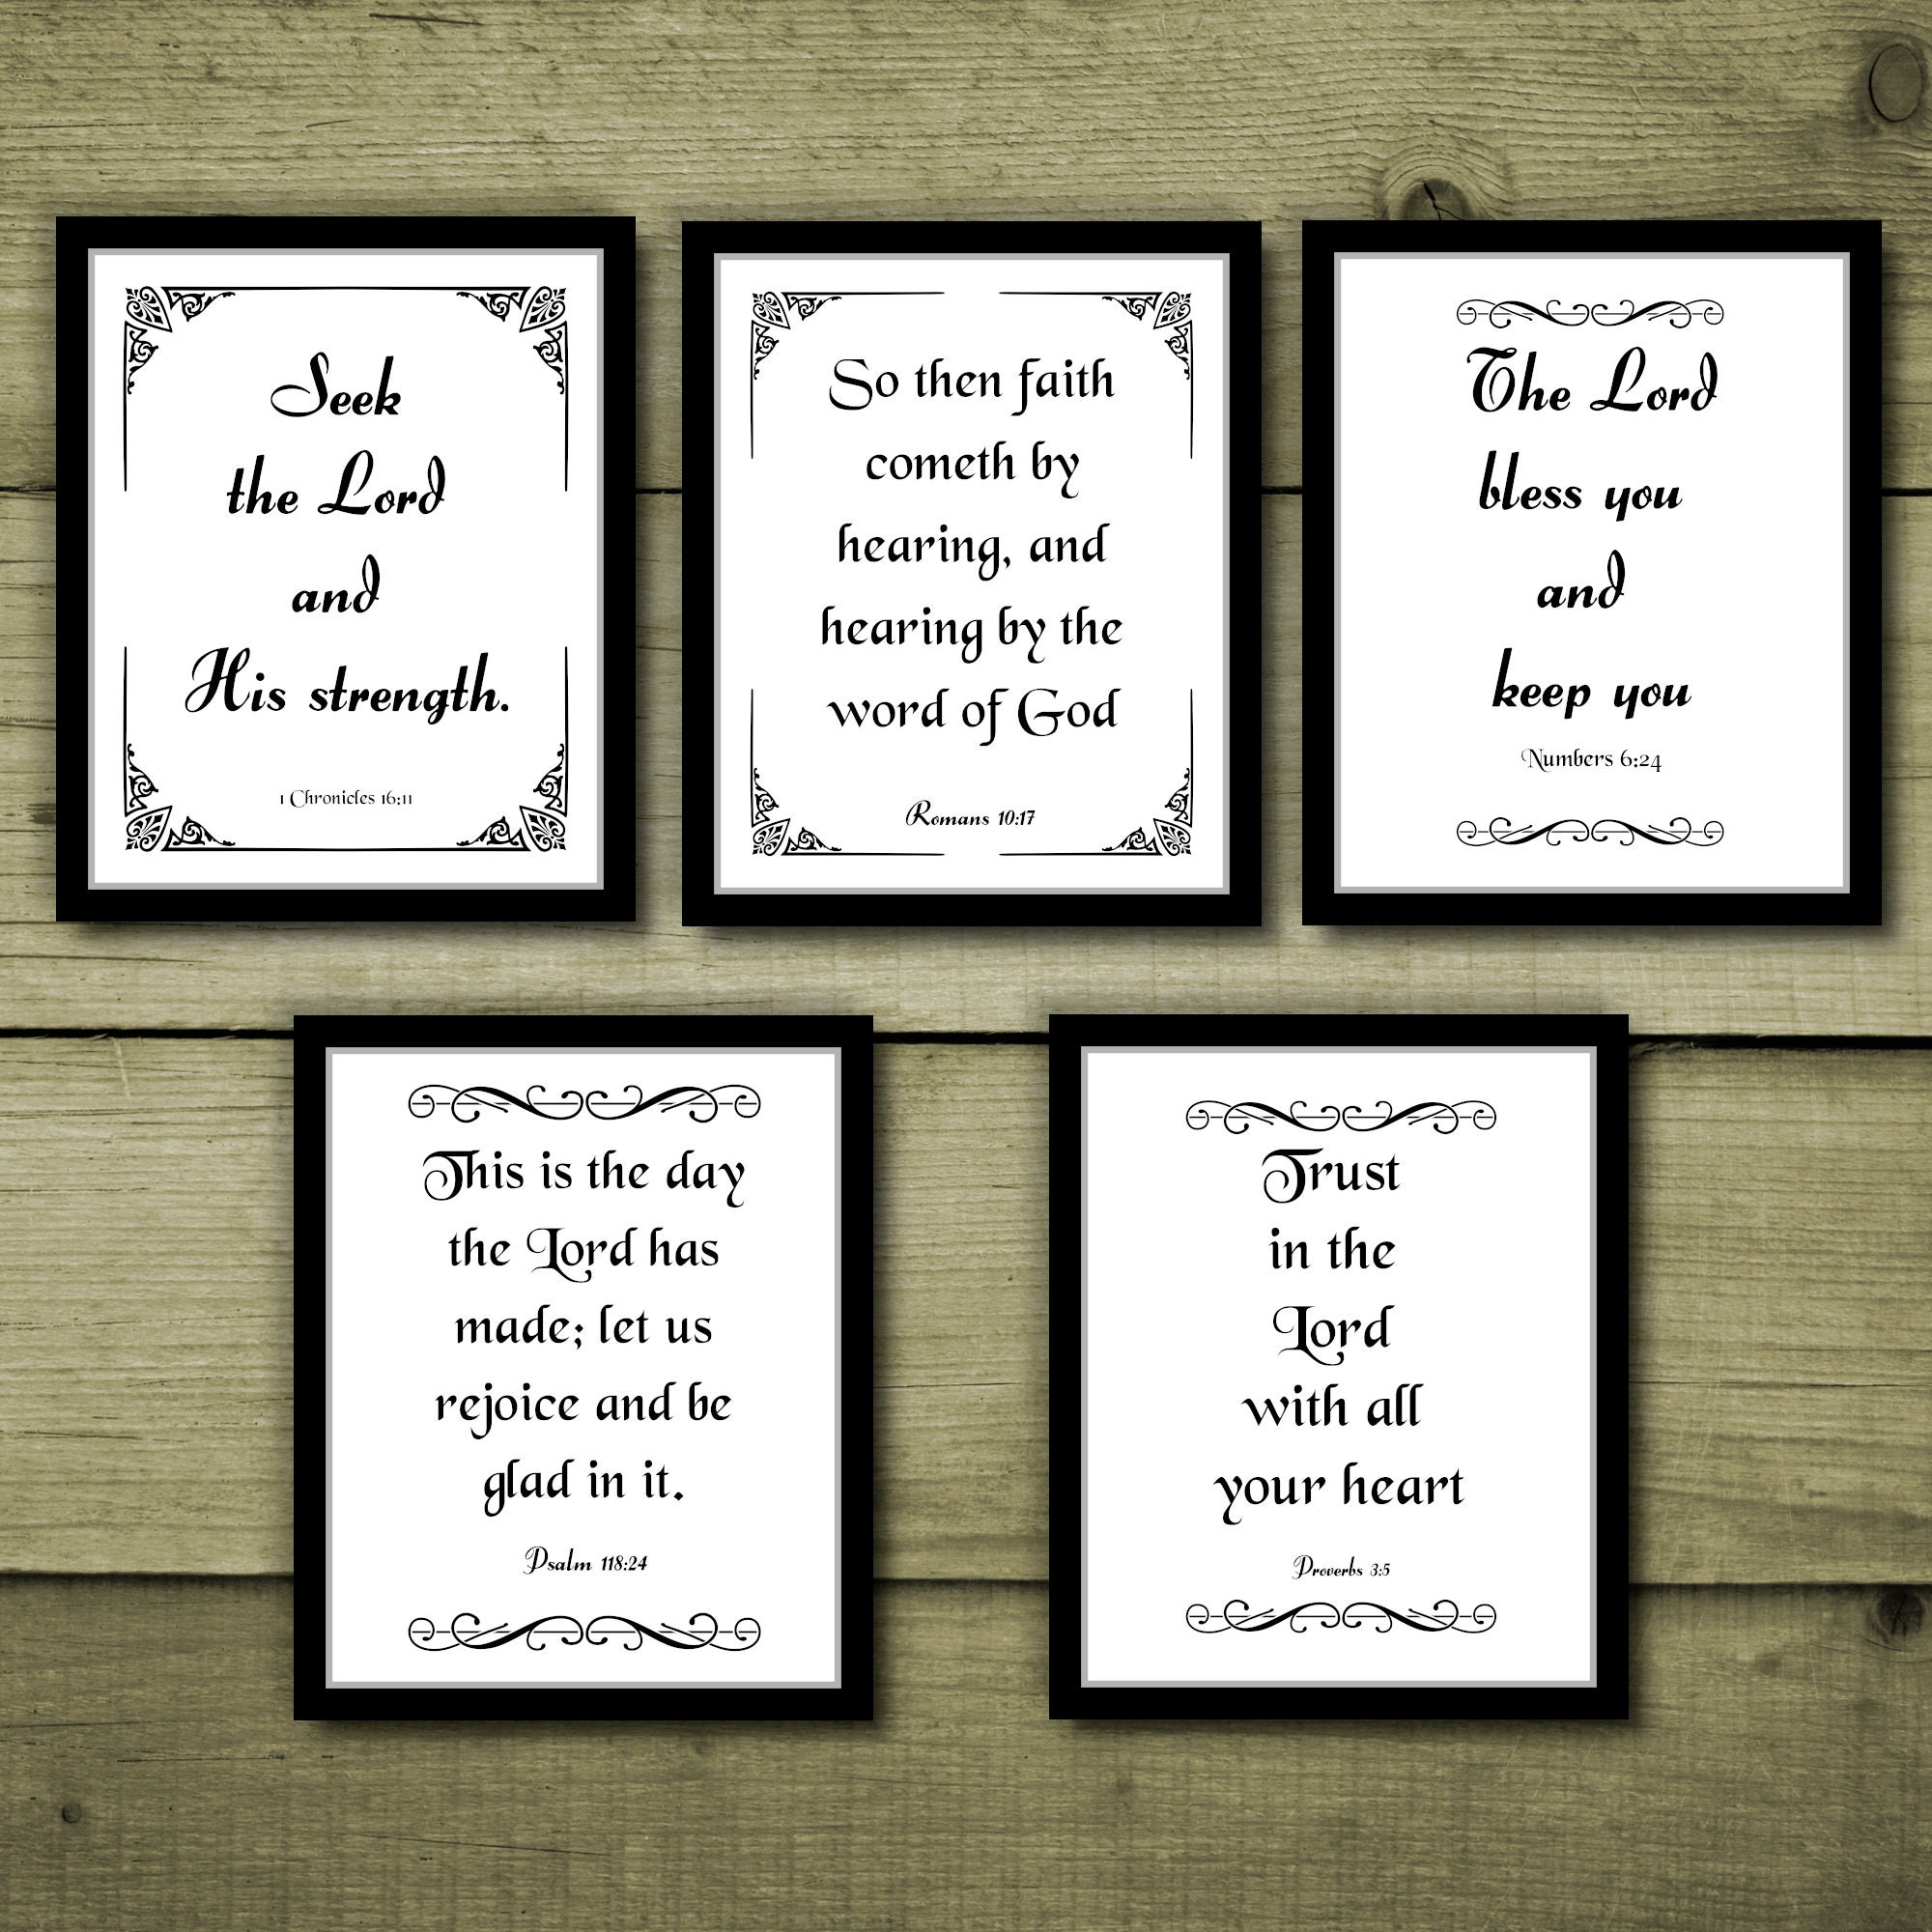 Seek
the Lord
and
His strength.
1 Chronicles 16:11
So then faith
cometh by
hearing, and
hearing by the
word of God
Romans 10:17
The Lord
bless you
and
keep you
Numbers 6:24
This is the day
the Lord has
made; let us
rejoice and be
glad in it.
Psalm 118:24
Trust
in the
Lord
with all
your heart
Proverbs 3:5